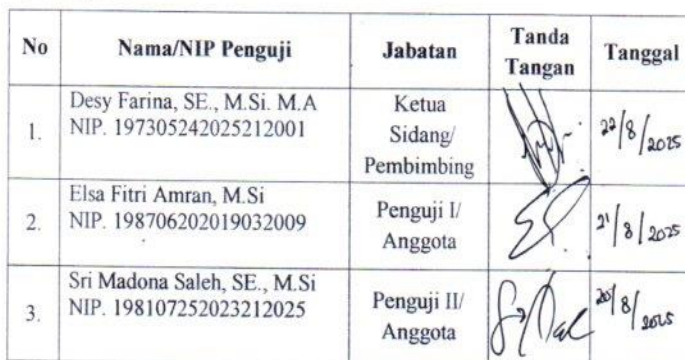 No Nama/NIP Penguji Jabatan Tanda Tangan Tanggal
1. Desy Farina, SE., M.Si. M.A
NIP. 197305242025212001
Ketua
Sidang/
Pembimbing
22/8/2025
2. Elsa Fitri Amran, M.Si
NIP. 198706202019032009
Penguji I/
Anggota
21/8/2025
3. Sri Madona Saleh, SE., M.Si
NIP. 198107252023212025
Penguji II/
Anggota
20/8/2025